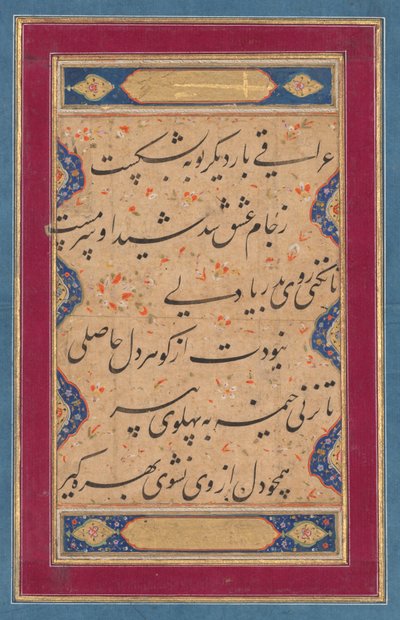 عراقی بار دیگر توبه بشکست
ز جام عشق شد شیدا و سرمست
تا نکنی روی بدریا دلی
نبودت از کوهر دل حاصلی
تا نزنی خیمه به پهلوی پیر
همچو دل از وی نشوی بهره کیر